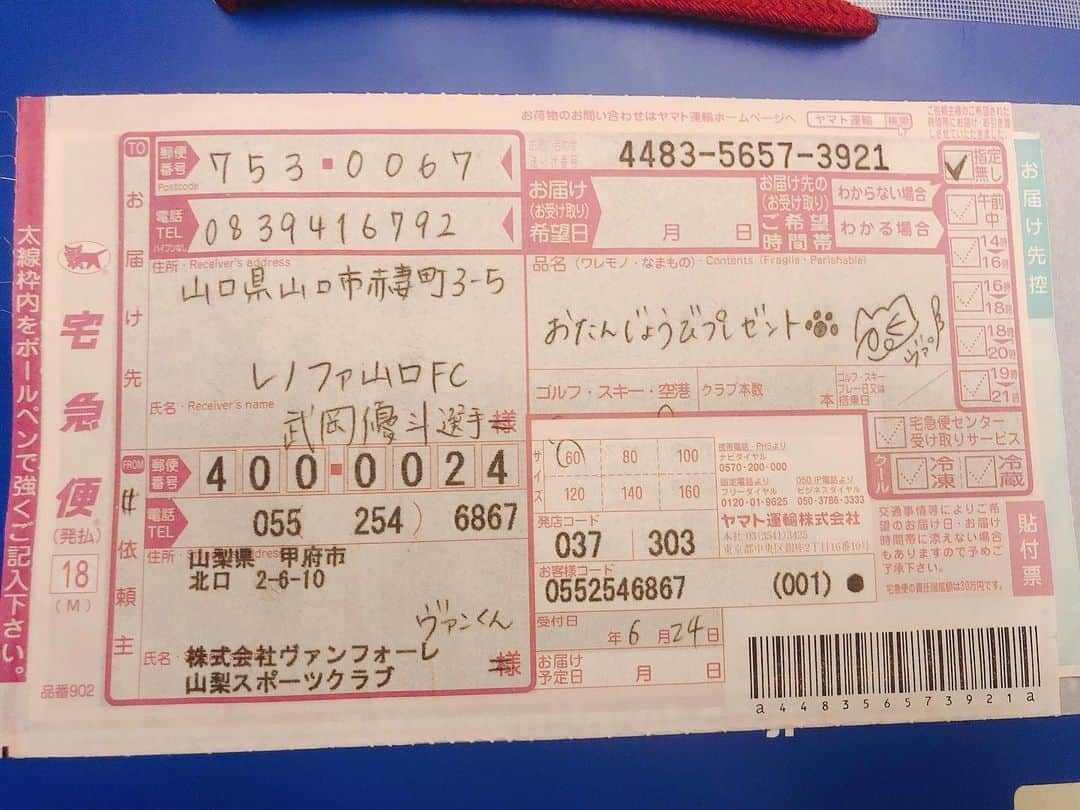 お荷物のお問い合わせはヤマト運輸ホームページへ ヤマト運輸 検索
TO お届け先
郵便番号 Postcode 753-0067
4483-5657-3921
電話 TEL ハイフンなし 0839416792
住所・Receiver's address
山口県山口市赤妻町3-5
レノファ山口FC
氏名・Receiver's name
武岡優斗選手様
お届け(お受け取り)希望日 月 日
お届け先の(お受け取り)ご希望時間帯
わからない場合
わかる場合
指定無し
午前中
14時 16時
16時 18時
18時 20時
19時 21時
お届け先控
品名(ワレモノ・なまもの)・Contents (Fragile・Perishable)
おたんじょうびプレゼント
ヴァン
ゴルフ・スキー・空港 クラブ本数 本
ゴルフ・スキー プレー日又は搭乗日
宅急便センター受け取りサービス
クール 冷凍 冷蔵
サイズ 60 80 100
120 140 160
携帯電話・PHSより
ナビダイヤル
0570-200-000
固定電話より フリーダイヤル 0120-01-9625
050、IP電話より ビジネスダイヤル 050-3786-3333
ヤマト運輸株式会社
本社 03(3541)3425
東京都中央区銀座2丁目16番10号
発店コード
037 303
お客様コード
0552546867 (001) ●
受付日 年 6 月 24 日
お届け予定日 月 日
交通事情等によりご希望のお届け日・お届け時間帯に添えない場合もありますので予めご了承下さい。
宅急便の責任限度額は30万円です。
貼付票
FROM ご依頼主
郵便番号 400-0024
電話 TEL 055 254) 6867
住所
山梨県 甲府市
北口 2-6-10
ヴァンくん
氏名
株式会社ヴァンフォーレ
山梨スポーツクラブ
様
a448356573921a
宅急便
(発払)
18
(M)
太線枠内をボールペンで強くご記入下さい。
品番902